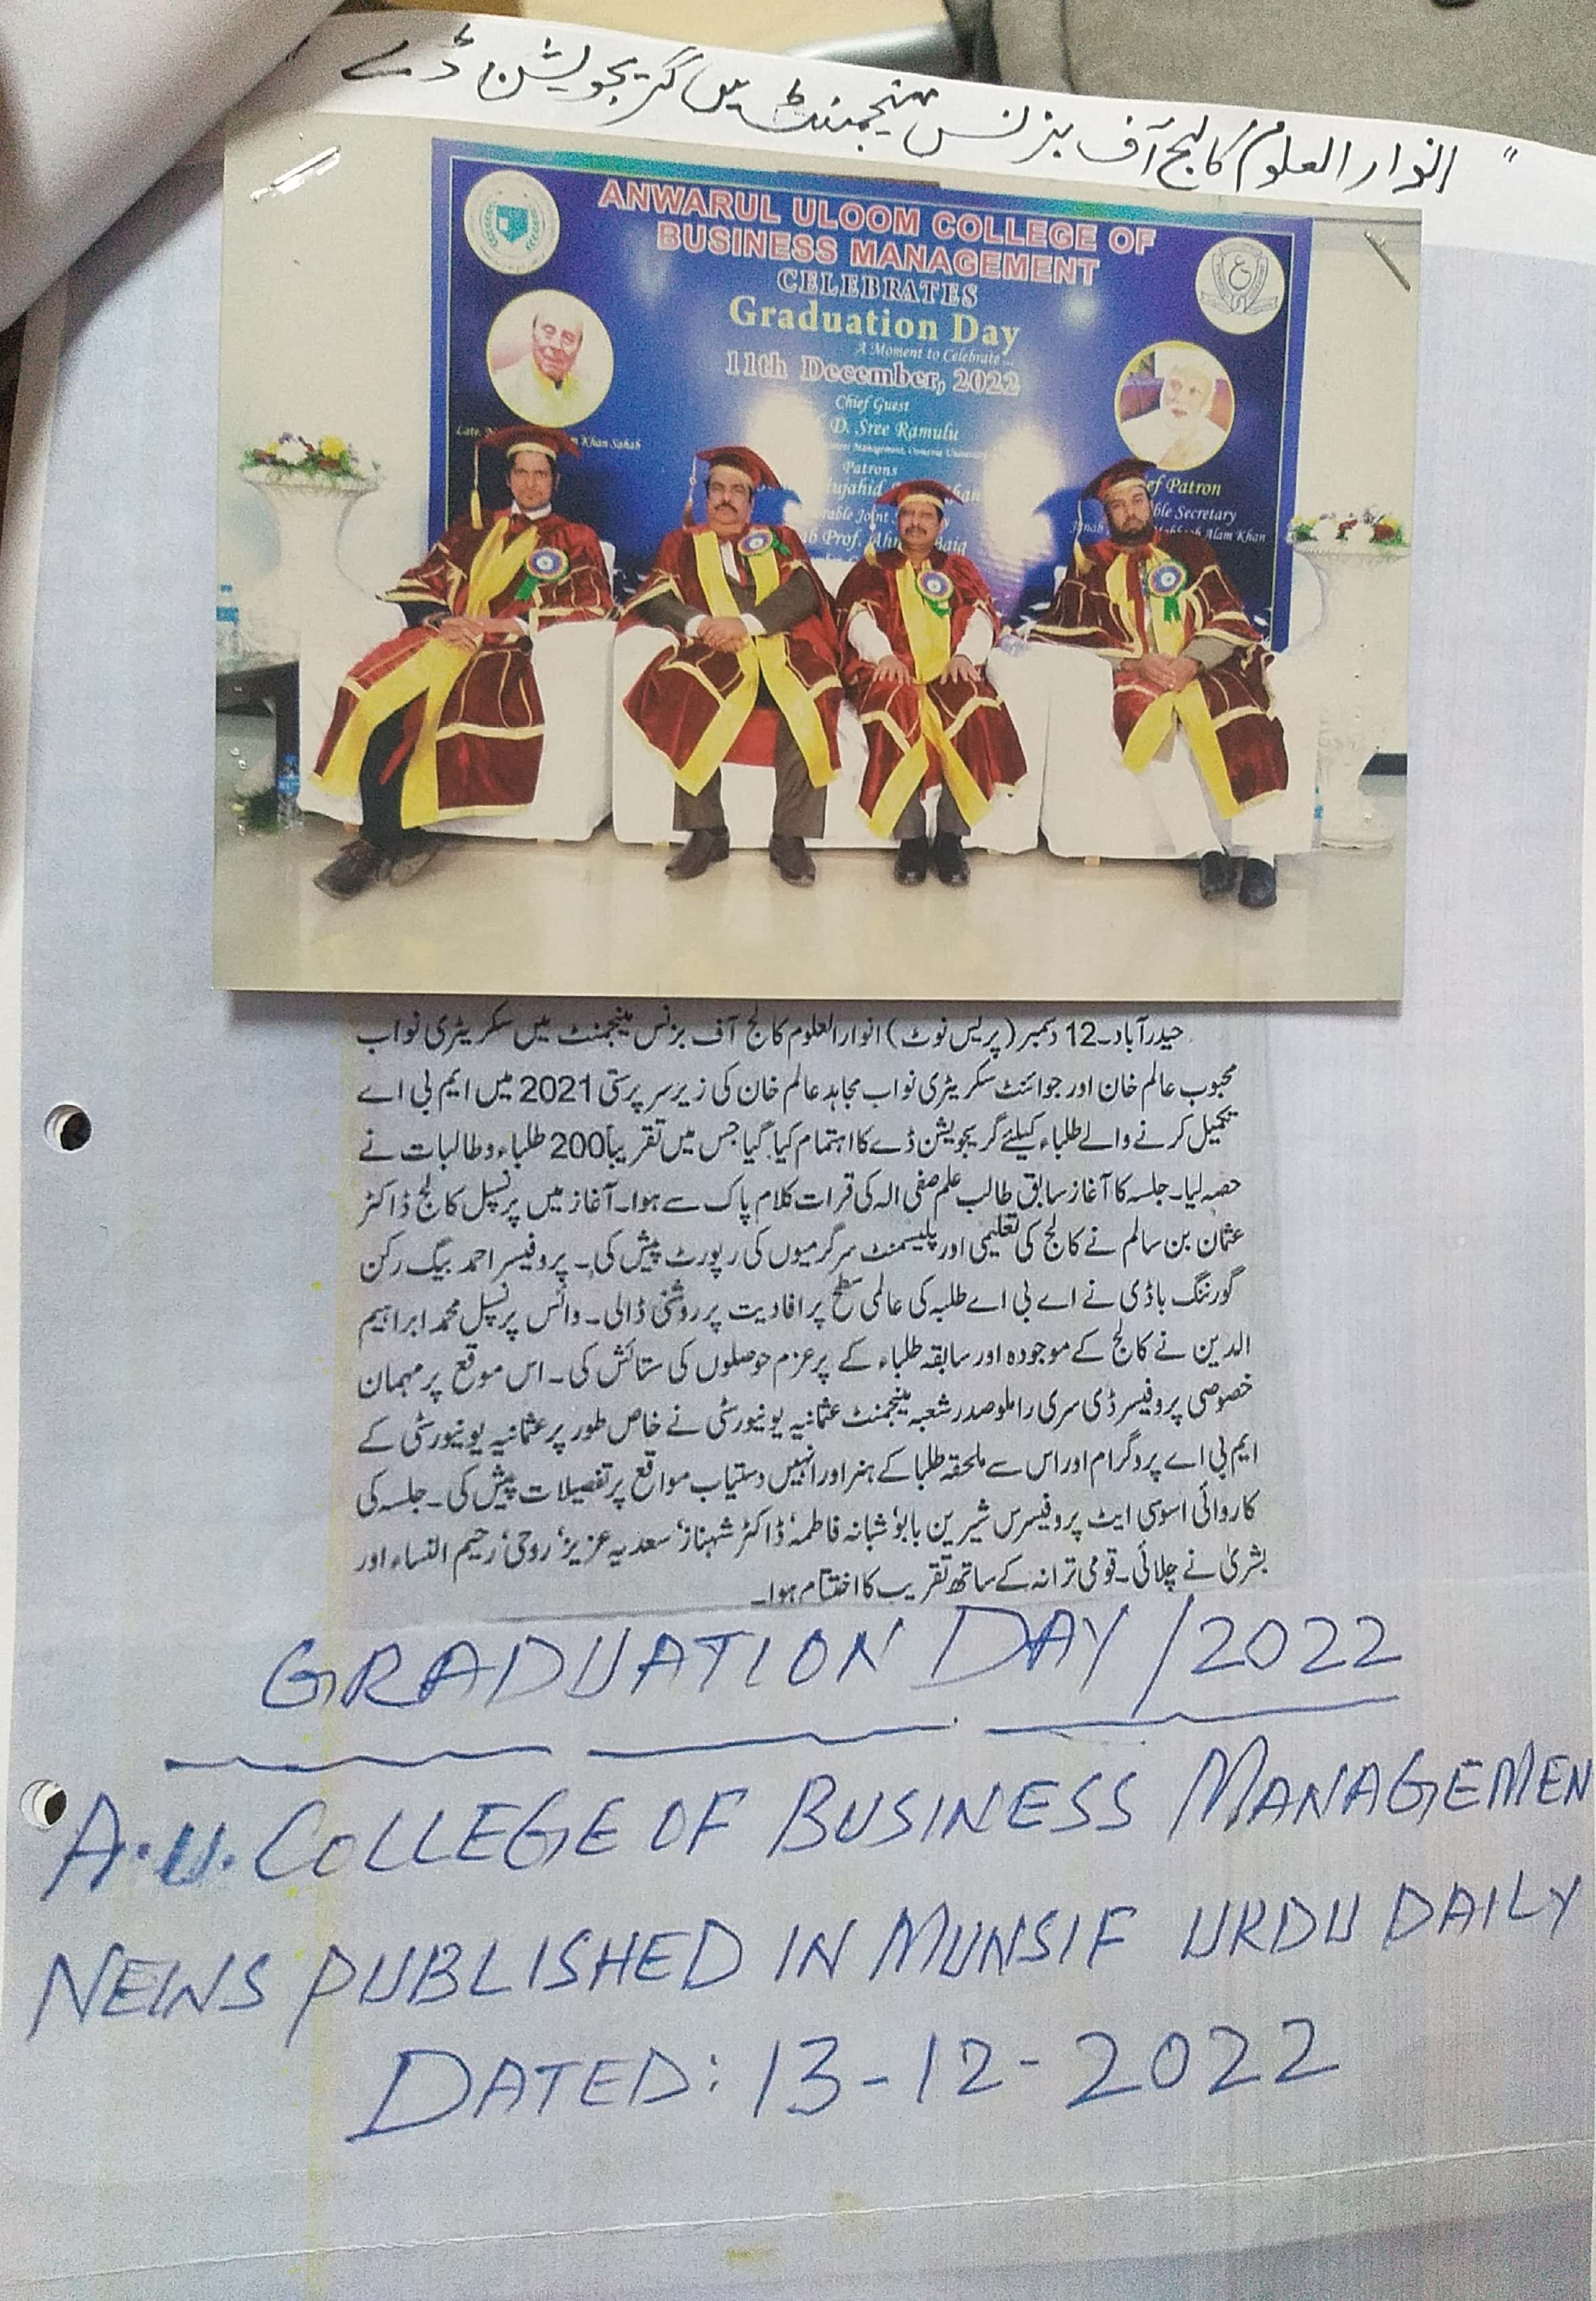 " انوار العلوم کالج آف بزنس مینجمنٹ میں گریجویشن ڈے "
ANWARUL ULOOM COLLEGE OF
BUSINESS MANAGEMENT
CELEBRATES
Graduation Day
A Moment to Celebrate ...
11th December, 2022
Chief Guest
D. Sree Ramulu
Management, Osmania University
Patrons
Mujahid
Joint
Prof. Baig
Late. Khan Sahab
Patron
Secretary
Janab Alam Khan
حیدرآباد۔12 دسمبر (پریس نوٹ) انوارالعلوم کالج آف بزنس مینجمنٹ میں سکریٹری نواب
محبوب عالم خان اور جوائنٹ سکریٹری نواب مجاہد عالم خان کی زیر سرپرستی 2021 میں ایم بی اے
تکمیل کرنے والے طلباء کیلئے گریجویشن ڈے کا اہتمام کیا گیا جس میں تقریباً 200 طلباء و طالبات نے
حصہ لیا۔ جلسہ کا آغاز سابق طالب علم صفی الہ کی قرات کلام پاک سے ہوا۔ آغاز میں پرنسپل کالج ڈاکٹر
عثمان بن سالم نے کالج کی تعلیمی اور پلیسمنٹ سرگرمیوں کی رپورٹ پیش کی۔ پروفیسر احمد بیگ رکن
گورننگ باڈی نے اے بی اے طلبہ کی عالمی سطح پر افادیت پر روشنی ڈالی۔ وائس پرنسپل محمد ابراہیم
الدین نے کالج کے موجودہ اور سابقہ طلباء کے پرعزم حوصلوں کی ستائش کی۔ اس موقع پر مہمان
خصوصی پروفیسر ڈی سری راملو صدر شعبہ مینجمنٹ عثمانیہ یونیورسٹی نے خاص طور پر عثمانیہ یونیورسٹی کے
ایم بی اے پروگرام اور اس سے ملحقہ طلبا کے ہنر اور انہیں دستیاب مواقع پر تفصیلات پیش کی۔ جلسہ کی
کاروائی اسوسی ایٹ پروفیسرس شیرین بابو، شبانہ فاطمہ، ڈاکٹر شہناز، سعدیہ عزیز، روحی، رحیم النساء اور
بشریٰ نے چلائی۔ قومی ترانہ کے ساتھ تقریب کا اختتام ہوا۔
GRADUATION DAY / 2022
A.U. COLLEGE OF BUSINESS MANAGEMEN
NEWS PUBLISHED IN MUNSIF URDU DAILY
DATED: 13-12-2022